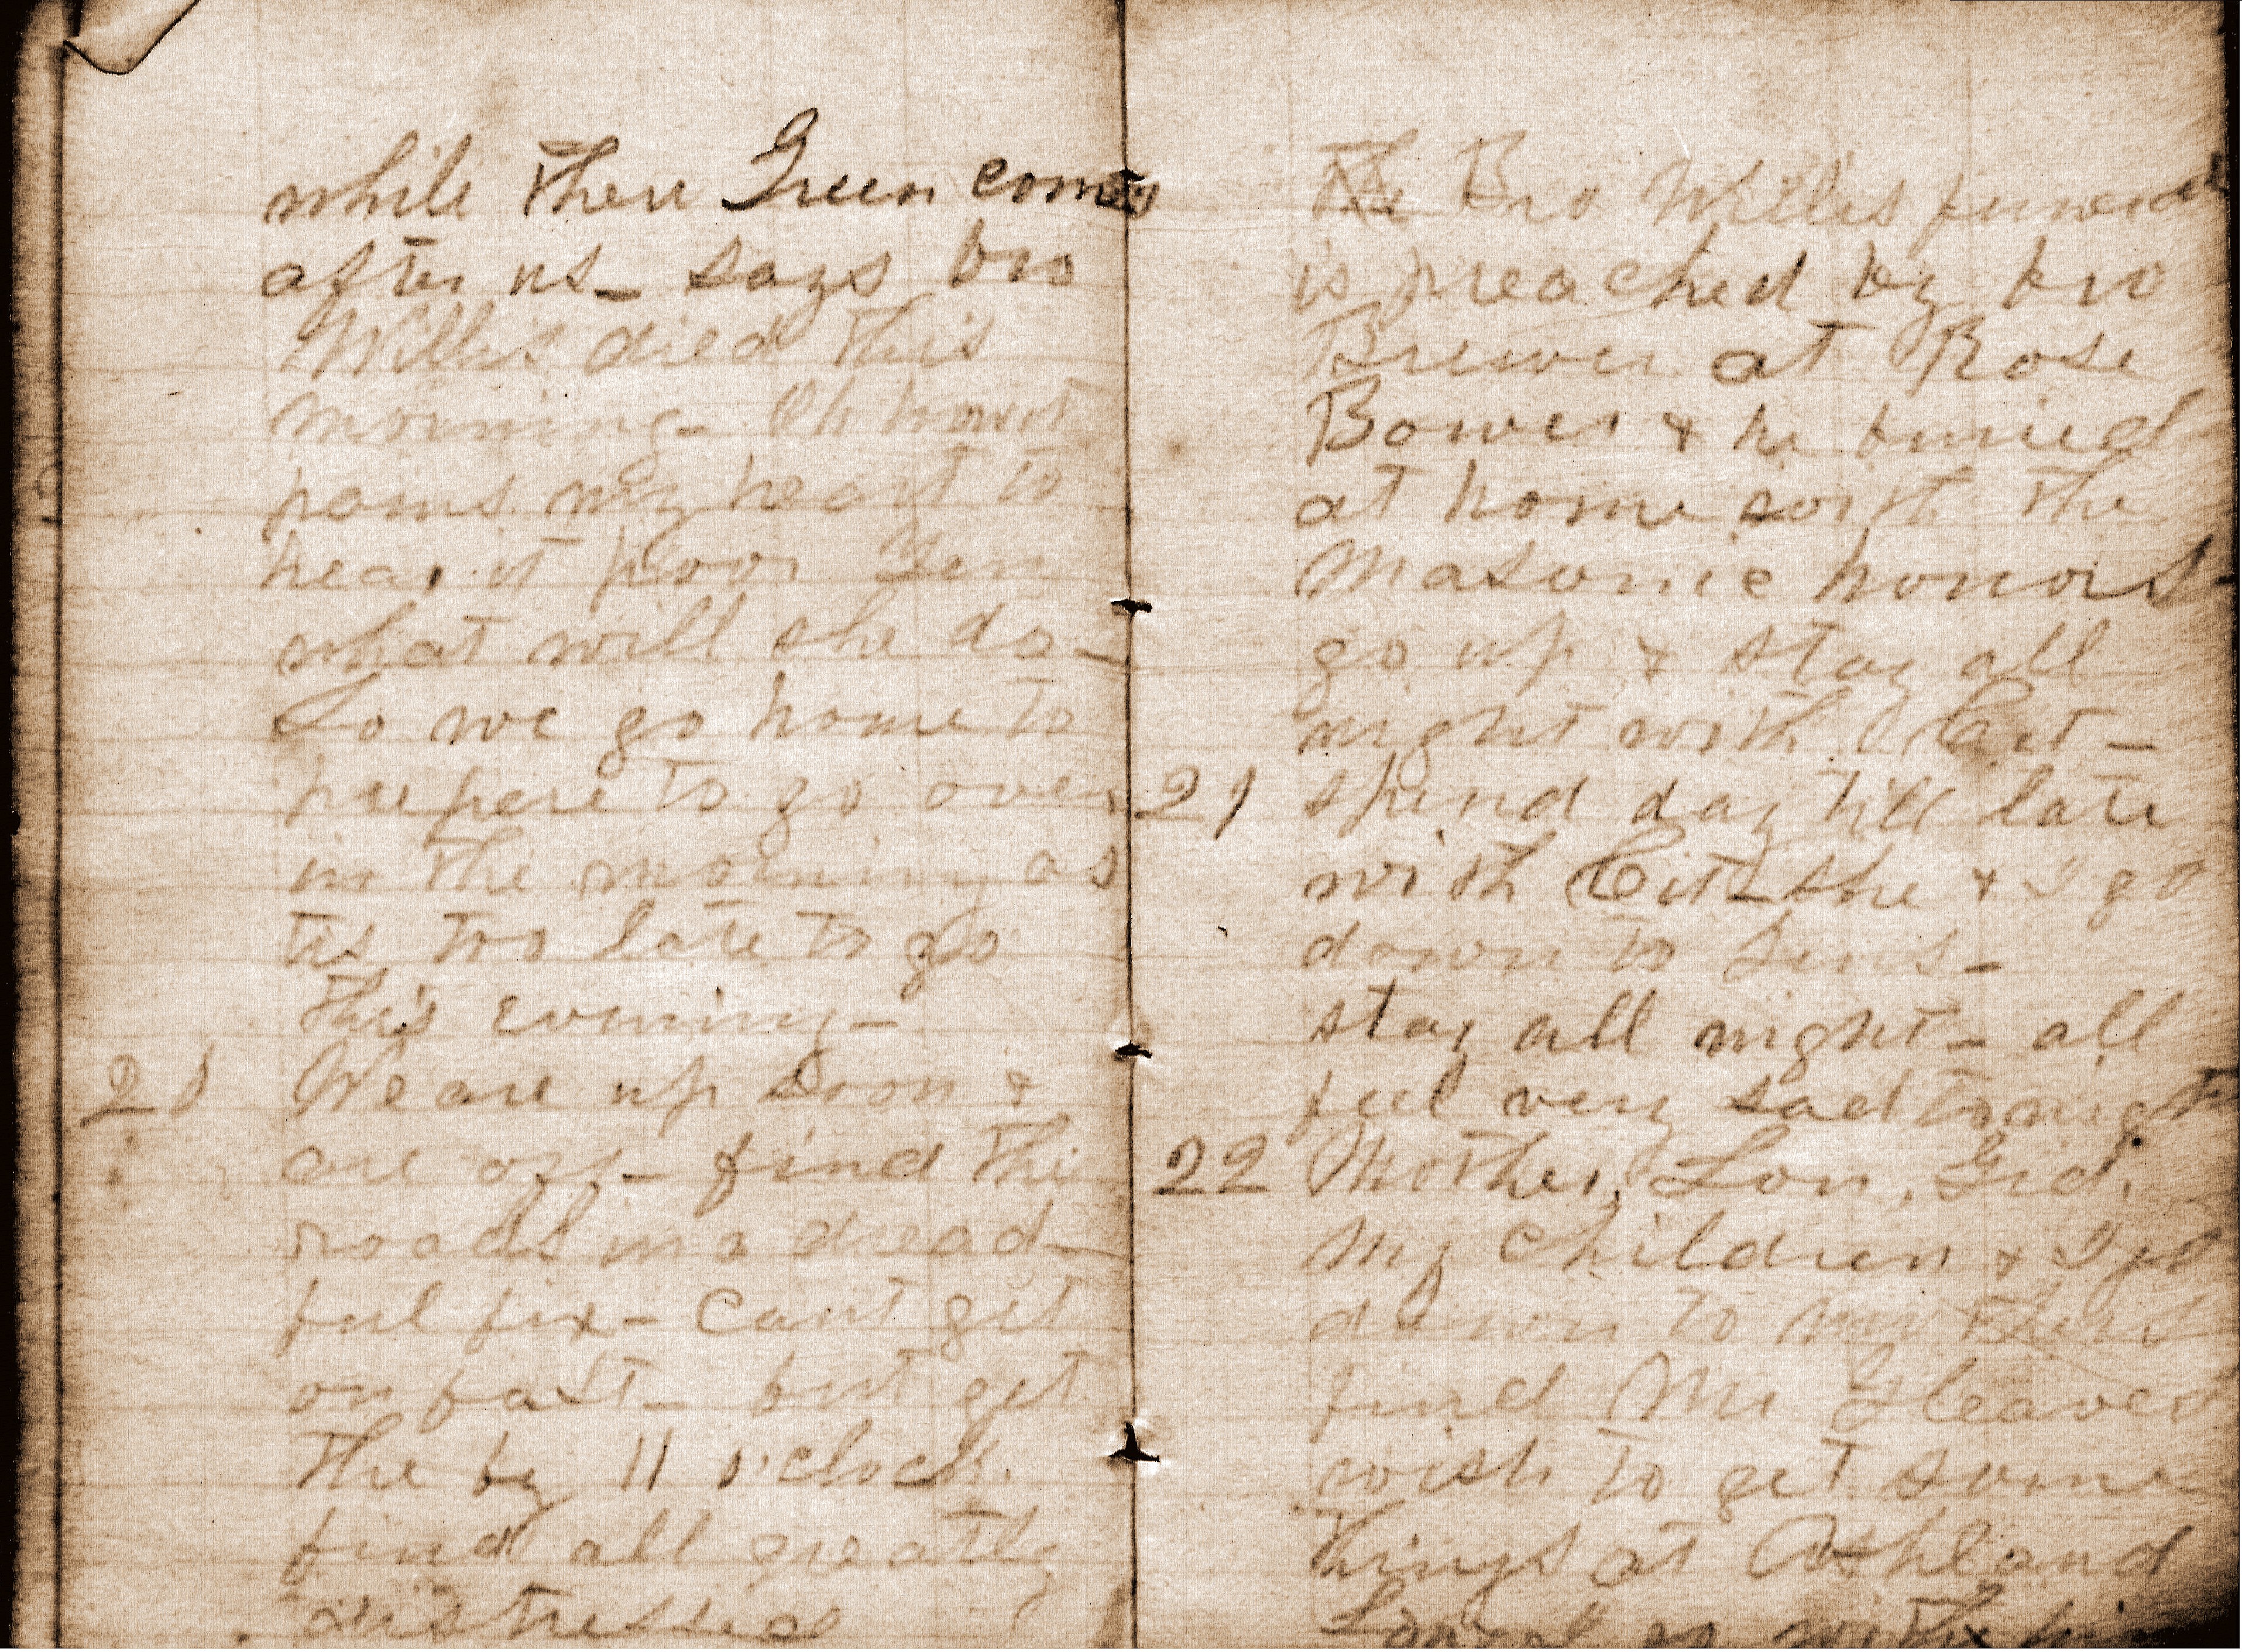 while there Green comes
after us_ says bro
Willis died this
morning_ Oh how it
pains my heart to
hear it poor Jen
what will she do_
So we go home to
prepere to go over
in the morning as
tis too late to go
this evening_
20 We are up soon &
are off_ find the
roads in a dread-
ful fix_ cant get
on fast_ but get
the by 11 o'clock
find all greatly
distressed
The Bro Willis funeral
is preached by bro
Brewer at Rose
Bower & he buried
at home with the
Masonic honors_
go up & stay all
night with Cit_
21 spend day till late
with Cit_ she & I go
down to Jens_
stay all night_ all
feel very sad tonight
22 Mother, Lon, Gid,
my children & I go
down to mothers
find Mr Gleaves
wish to get some
things at Ashland